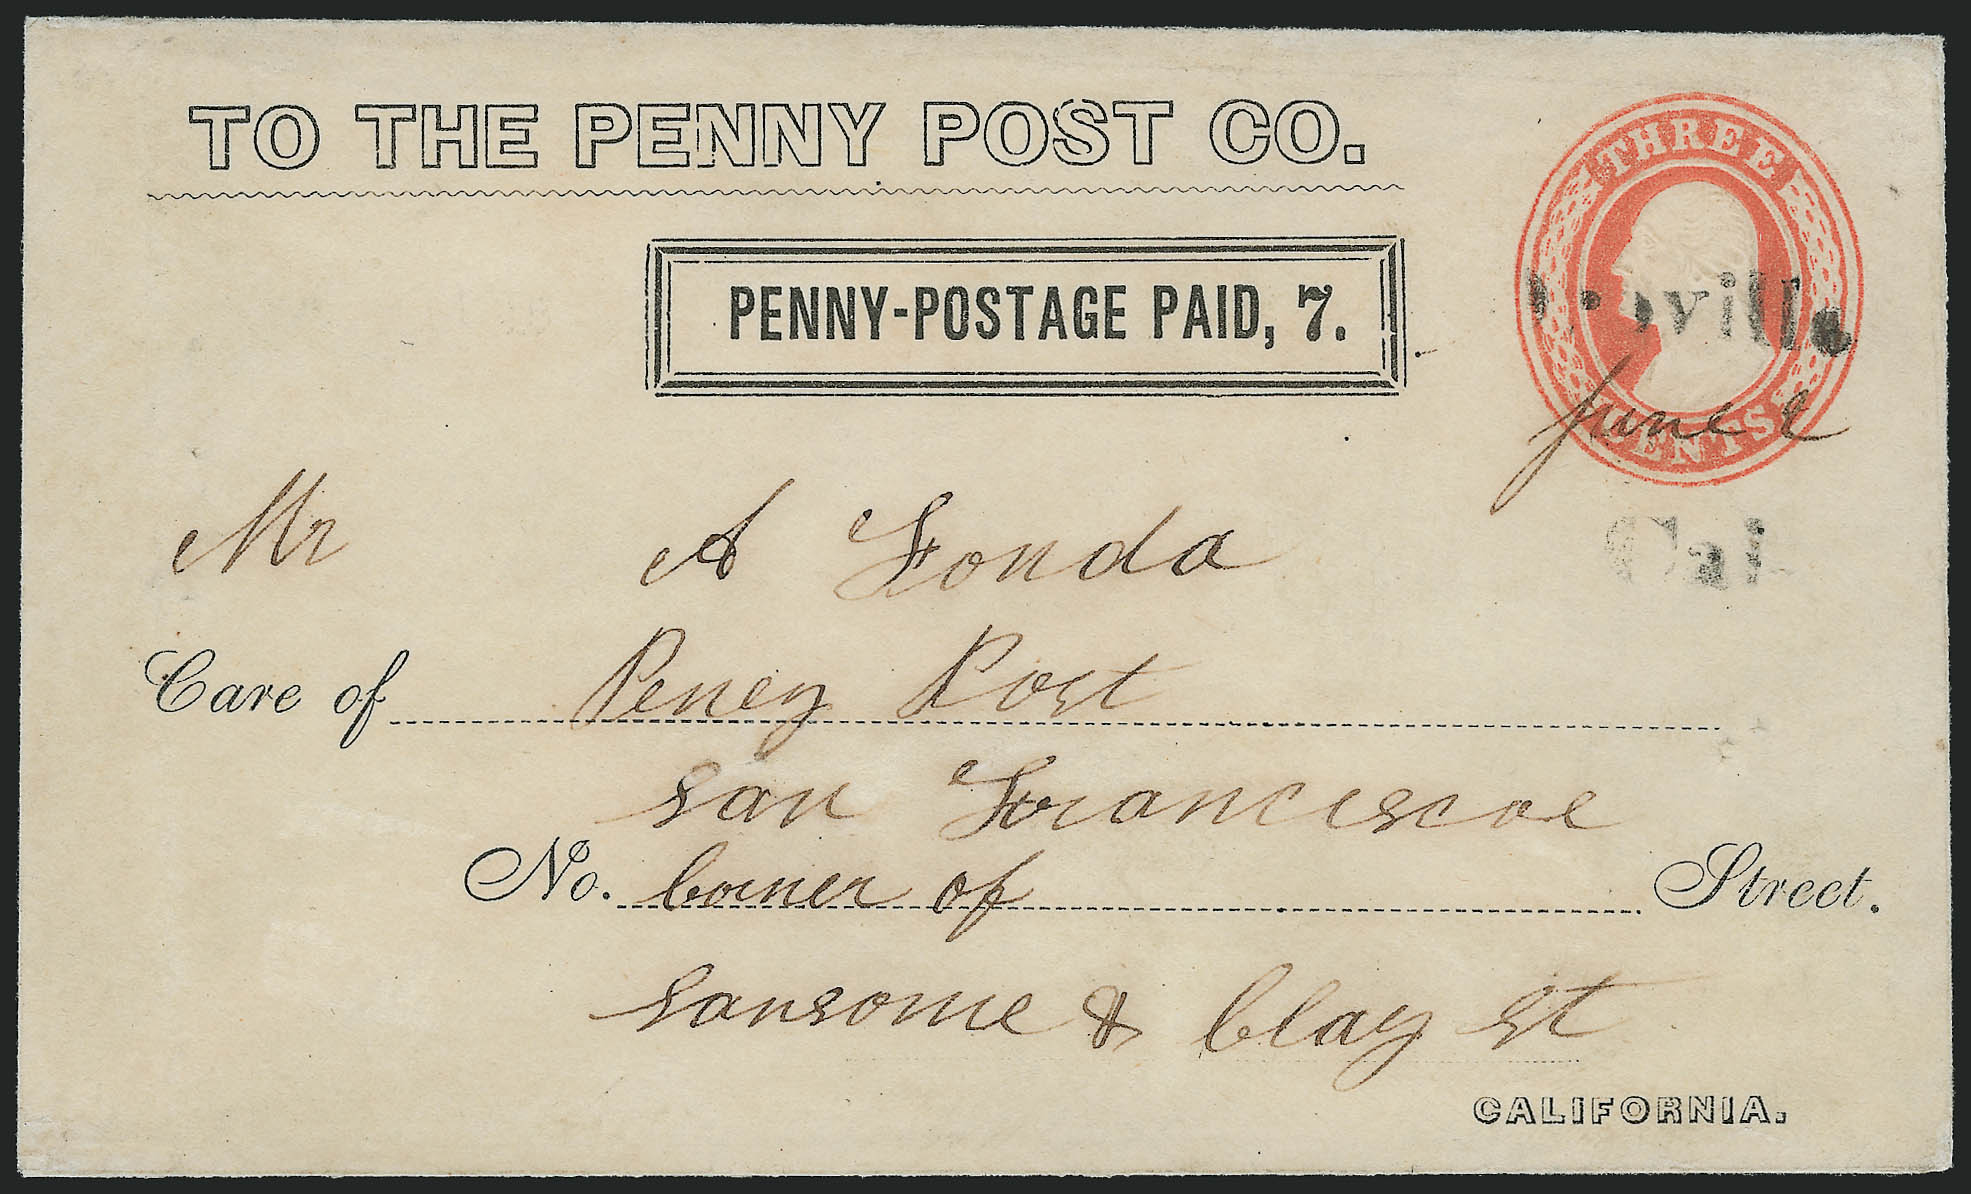 TO THE PENNY POST CO.
THREE CENTS
PENNY-POSTAGE PAID, 7.
June
Cal
Mr A Fonda
Care of Peney Post
San Franciscoe
No. Corner of Street.
Sansome & Clay St
CALIFORNIA.